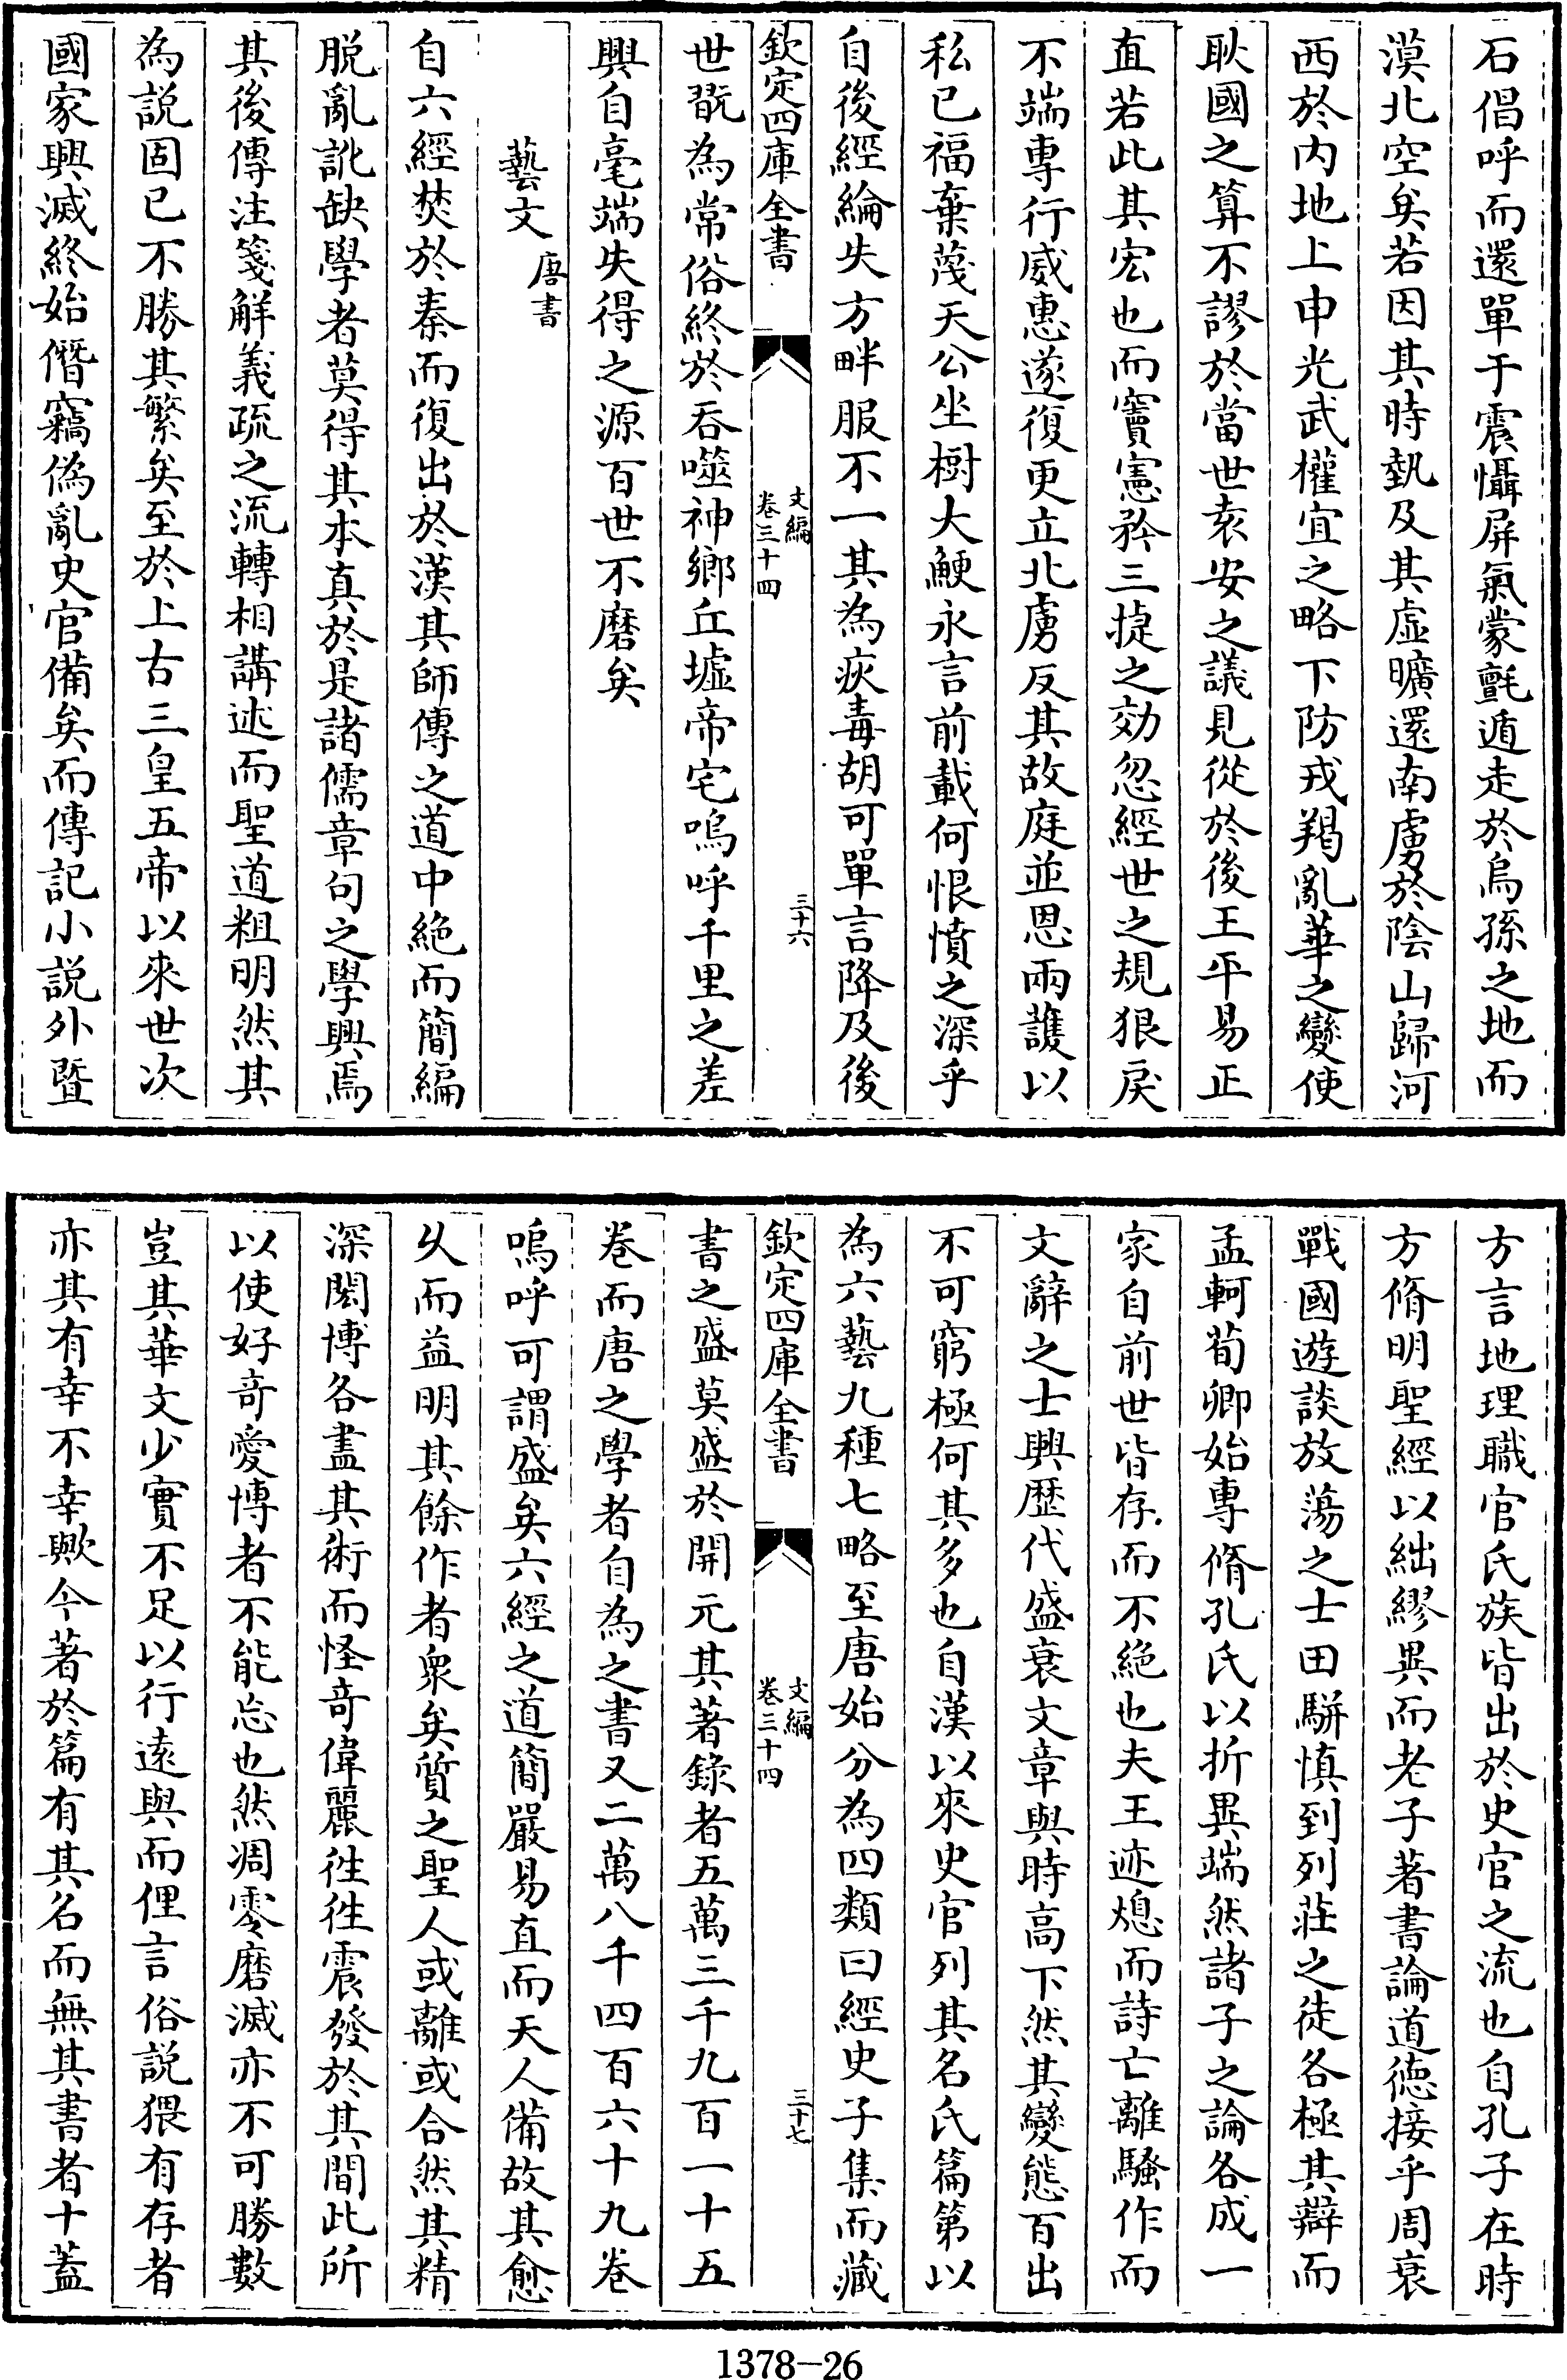 石倡呼而還單于震懾屏氣蒙氈遁走於烏孫之地而
漠北空矣若因其時埶及其虛曠還南虜於陰山歸河
西於内地上申光武權宜之略下防戎羯亂華之變使
耿國之算不謬於當世袁安之議見從於後王平易正
直若此其宏也而竇憲矜三捷之効忽經世之規狠戾
不端專行威惠遂復更立北虜反其故庭並恩兩護以
私已福棄蔑天公坐樹大鯁永言前載何恨憤之深乎
自後經綸失方畔服不一其為疢毒胡可單言降及後
欽定四庫全書
文編
卷三十四
三十六
世翫為常俗終於吞噬神鄉丘墟帝宅嗚呼千里之差
興自毫端失得之源百世不磨矣
藝文 唐書
自六經焚於秦而復出於漢其師傳之道中絶而簡編
脱亂訛缺學者莫得其本真於是諸儒章句之學興焉
其後傳注箋解義疏之流轉相講述而聖道粗明然其
為説固已不勝其繁矣至於上古三皇五帝以來世次
國家興滅終始僭竊偽亂史官備矣而傳記小説外暨
方言地理職官氏族皆出於史官之流也自孔子在時
方脩明聖經以絀繆異而老子著書論道徳接乎周衰
戰國遊談放蕩之士田駢慎到列莊之徒各極其辯而
孟軻荀卿始專脩孔氏以折異端然諸子之論各成一
家自前世皆存而不絶也夫王迹熄而詩亡離騷作而
文辭之士興歴代盛衰文章與時高下然其變態百出
不可窮極何其多也自漢以來史官列其名氏篇第以
為六藝九種七略至唐始分為四類曰經史子集而藏
欽定四庫全書
文編
卷三十四
三十七
書之盛莫盛於開元其著錄者五萬三千九百一十五
卷而唐之學者自為之書又二萬八千四百六十九卷
嗚呼可謂盛矣六經之道簡嚴易直而天人備故其愈
乆而益明其餘作者衆矣質之聖人或離或合然其精
深閎博各盡其術而怪奇偉麗徃徃震發於其間此所
以使好竒愛博者不能忘也然凋零磨滅亦不可勝數
豈其華文少實不足以行遠與而俚言俗説猥有存者
亦其有幸不幸歟今著於篇有其名而無其書者十蓋
1378—26